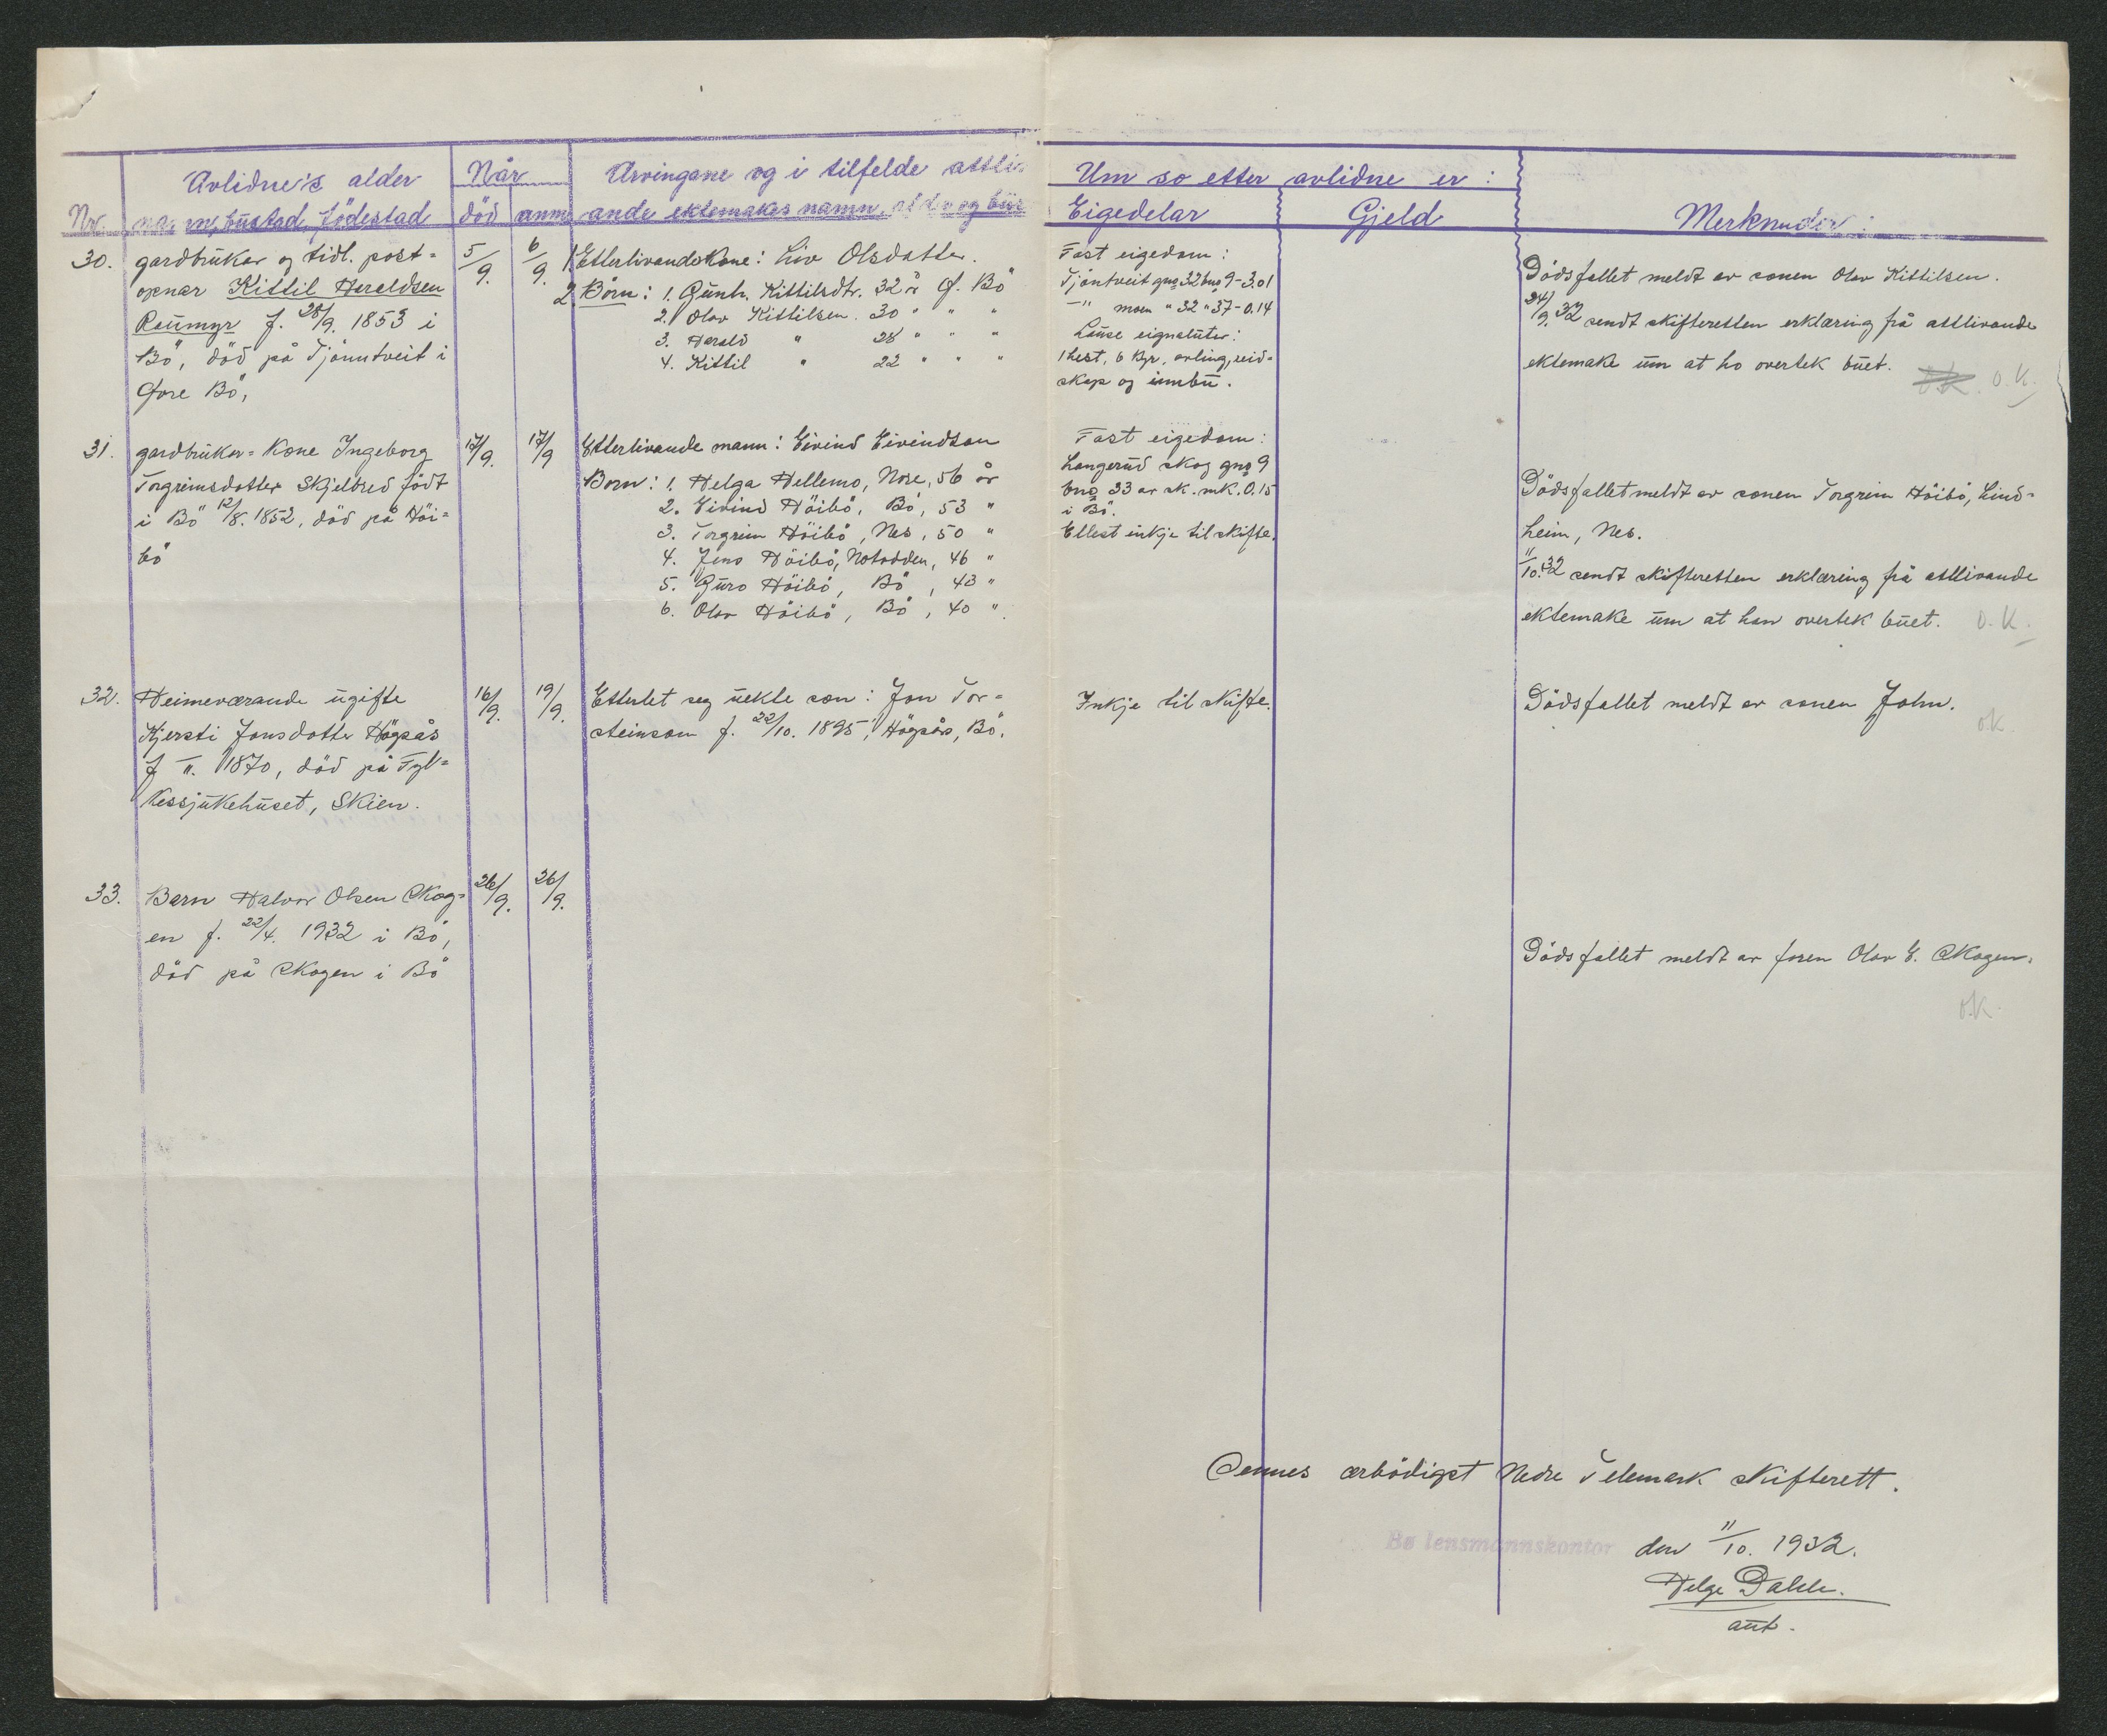 Avlidne's alder
Når
Arvingane og i tilfelde attli
Um so etter avlidne er:
Nr. namn, bustad, födestad
död anm.
ande ektemakes namn, alder og bu
Eigedelar
Gjeld
Merknader:
30. gardbrukar og tidl. post-
opnar Kittil Heraldsen
Raumyr f. 28/9. 1853 i
Bö, död på Tjönntveit i
Övre Bö,
5/9. 6/9.
1 Etterlivandekone: Liv Olsdatter.
2 Börn: 1. Gunh. Kittilsdtr. 32 år Ø. Bö
2. Olav Kittilsen. 30 " " "
3. Herald " 28 " " "
4. Kittil " 22 " " "
Fast eigedom:
Tjöntveit gno 32 bno 9-3.01
-"- moen " 32 " 37-0.14
Lause eignaluter:
1 hest, 6 kyr, avling, reid-
skap og innbu.
Dödsfallet meldt av sonen Olav Kittilsen.
24/9. 32 sendt skifteretten erklæring frå attlivande
ektemake um at ho overtek buet.
O.K. O.K.
31. gardbrukar-kone Ingeborg
Torgrimsdotter Skjelbred födt
i Bö 12/8. 1852, död på Höi-
bö
17/9. 17/9
Etterlivande mann: Eivind Eivindson
Born: 1. Helga Hellemo, Nore, 56 år
2. Eivind Höibö, Bö, 53 "
3. Torgrim Höibö, Nes, 50 "
4. Jens Höibö, Notodden, 46 "
5. Guro Höibö, Bö, 43 "
6. Olav Höibö, Bö, 40 "
Fast eigedom:
Langerud skog gno 9
bno 33 av sk. mk. 0.15
i Bö.
Ellest inkje til skifte.
Dödsfallet meldt av sonen Torgrim Höibö, Lind-
heim, Nes.
11/10. 32 sendt skifteretten erklæring frå attlivande
ektemake um at han overtek buet. O.K.
32. Heimeværande ugifte
Kjersti Jonsdotter Högsås
f 1870, död på Fyl-
kessjukehuset, Skien.
16/9. 19/9.
Etterlet seg uekte son: Jon Tor-
steinson f. 22/10. 1895, Högsås, Bö.
Inkje til skifte.
Dödsfallet meldt av sonen John.
ok.
33. Barn Halvor Olsen Skog-
en f. 22/4. 1932 i Bö,
död på Skogen i Bö
26/9. 26/9.
Dödsfallet meldt av faren Olav E. Skogen.
ok.
Sennes ærbödigst Nedre Telemark skifterett.
Bø lensmannskontor den 11/10. 1932.
Helge Dahle.
aut.